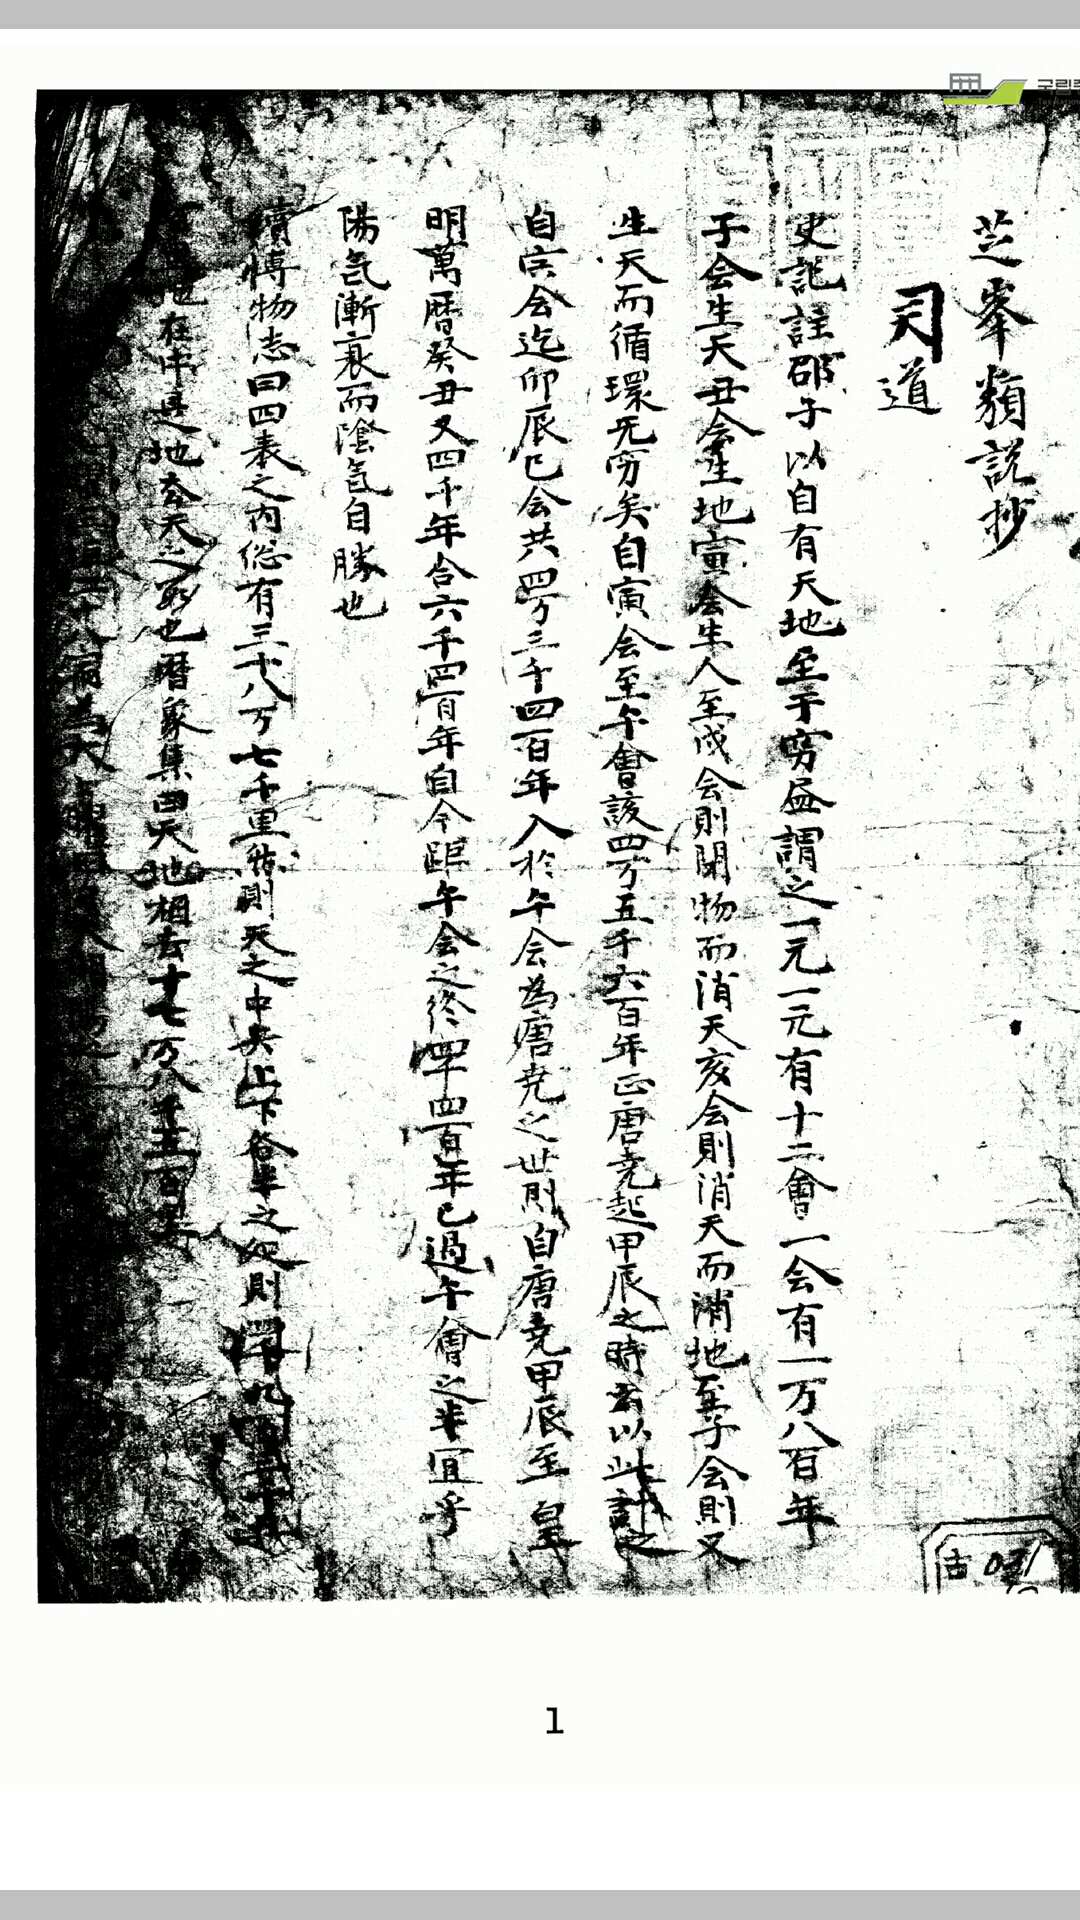 芝峯類說抄
天道
史記註邵子以自有天地至于窮盡謂之一元一元有十二會一会有一万八百年
子会生天丑会生地寅会生人至戌会則閉物而消天亥会則消天而消地至子会則又
生天而循環无窮矣自寅会至午會該四万五千六百年正唐尭起甲辰之時云以此計之
自寅会迄卯辰巳会共四万三千四百年入於午会為唐尭之世則自唐尭甲辰至皇
明萬曆癸丑又四千年合六千四百年自今距午会之終四千四百年已過午會之半宜乎
陽氣漸衰而陰氣自勝也
續博物志曰四表之内総有三十八万七千里然則天之中央上下各半之処則
地在中是地去天之数也曆象集曰天地相去十七万八千五百
二十八宿為大
국립중
古 031
1